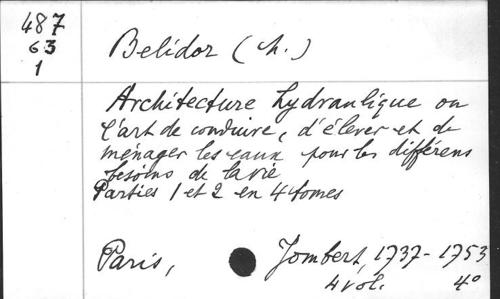 487
63
1
Belidor (h.)
Architecture hydraulique ou
l'art de conduire, d'élever et de
ménager les eaux pour les différens
besoins de la vie
Parties 1 et 2 en 4 tomes
Paris, Jombert, 1737-1753
4 vol. 4°